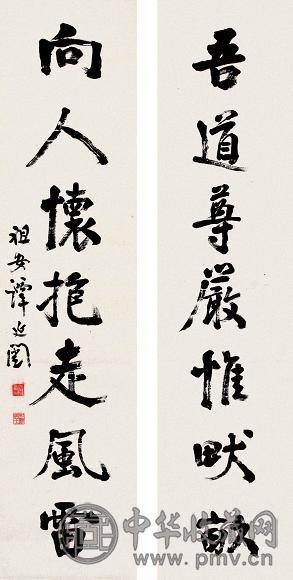 吾道尊嚴惟畎畝
向人懷抱走風雷
祖安譚延闓
中华收藏网
www.pmv.cn